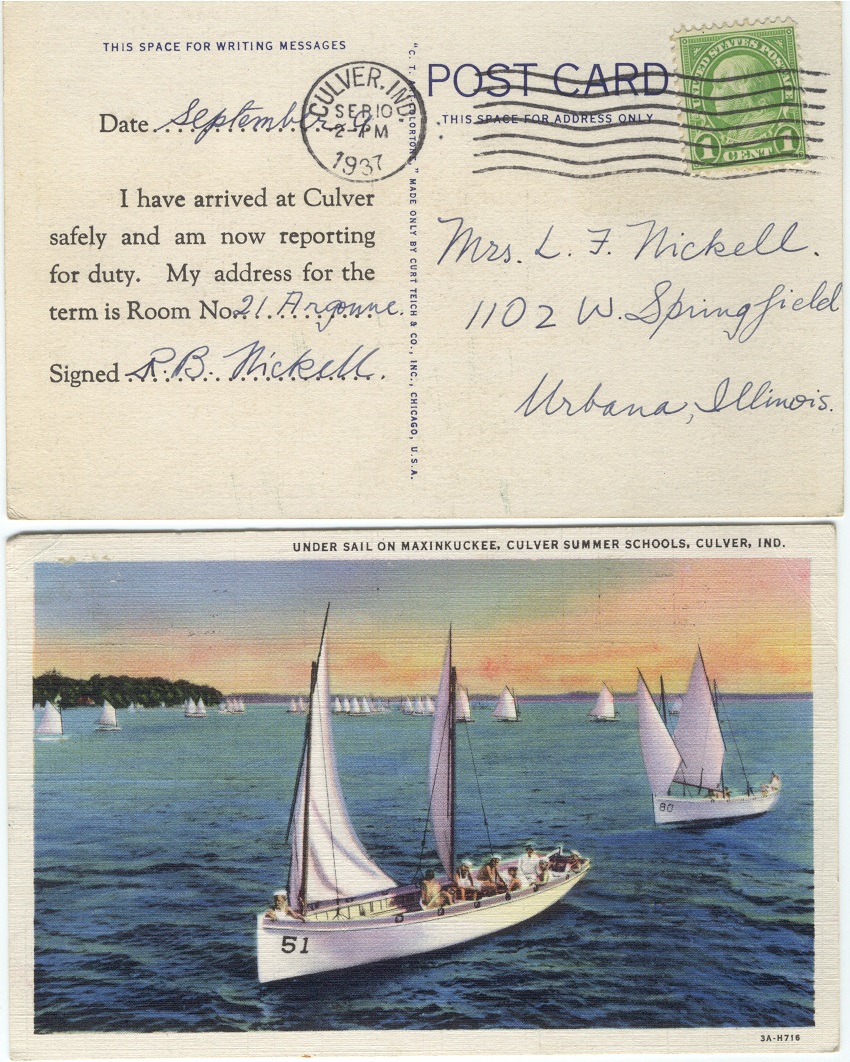 THIS SPACE FOR WRITING MESSAGES
Date September 9
I have arrived at Culver
safely and am now reporting
for duty. My address for the
term is Room No. 21 Argonne.
Signed R.B. Nickell.
"C. T. ART-COLORTONE" MADE ONLY BY CURT TEICH & CO., INC., CHICAGO, U.S.A.
CULVER, IND.
SEP 10
2 - PM
1937
POST CARD
THIS SPACE FOR ADDRESS ONLY
UNITED STATES POSTAGE
1 CENT 1
Mrs. L. F. Nickell.
1102 W. Springfield
Urbana, Illinois.
UNDER SAIL ON MAXINKUCKEE, CULVER SUMMER SCHOOLS, CULVER, IND.
80
51
3A-H716